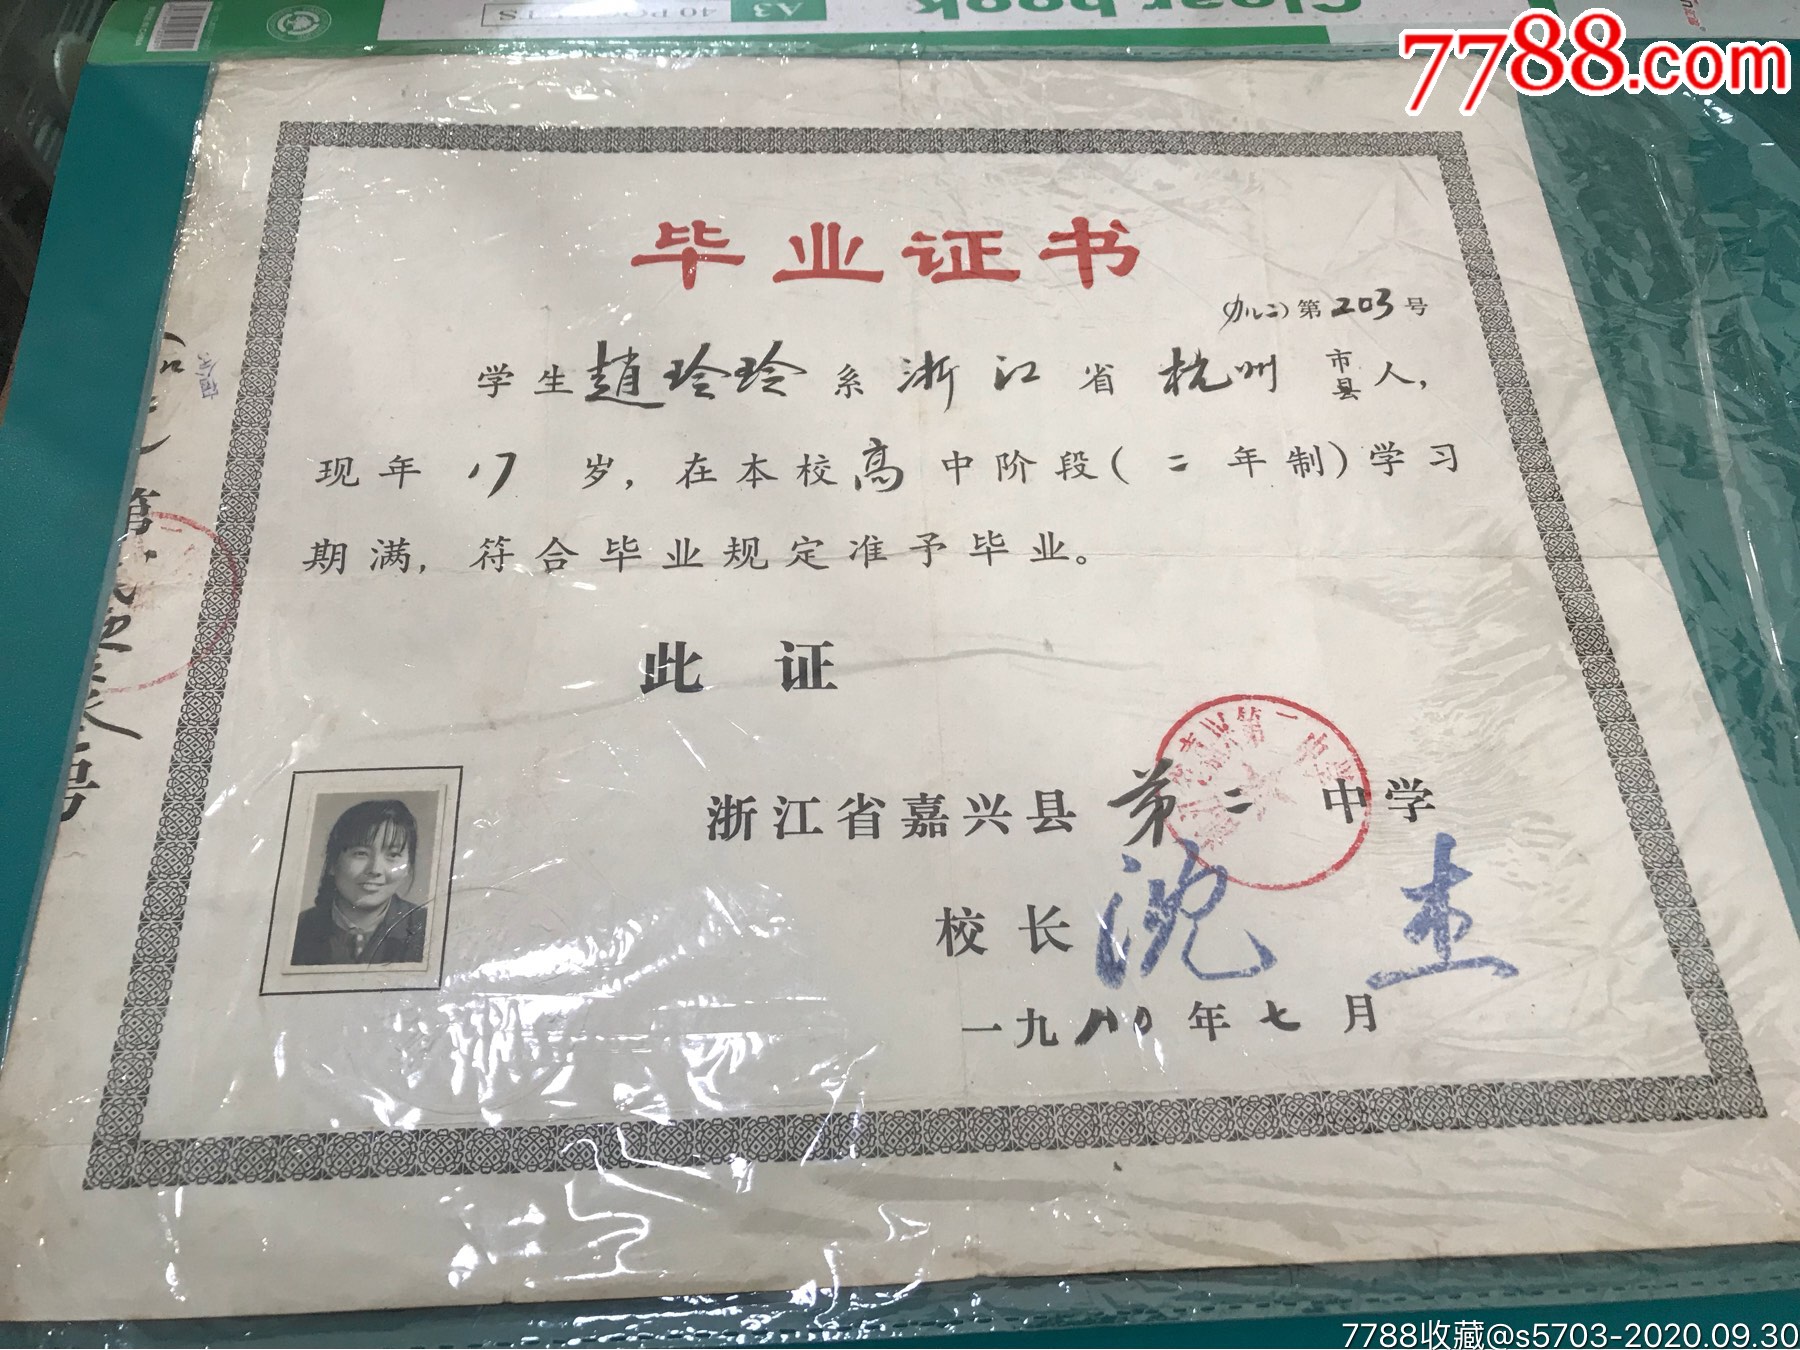 Clear book
A3
40 POCKETS
7788.com
毕业证书
第203号
学生趙玲玲系浙江省杭州市县人，
现年17岁，在本校高中阶段(二年制)学习
期满，符合毕业规定准予毕业。
此证
浙江省嘉兴县第二中学
校长沈杰
一九八〇年七月
第
号
7788收藏@s5703-2020.09.30